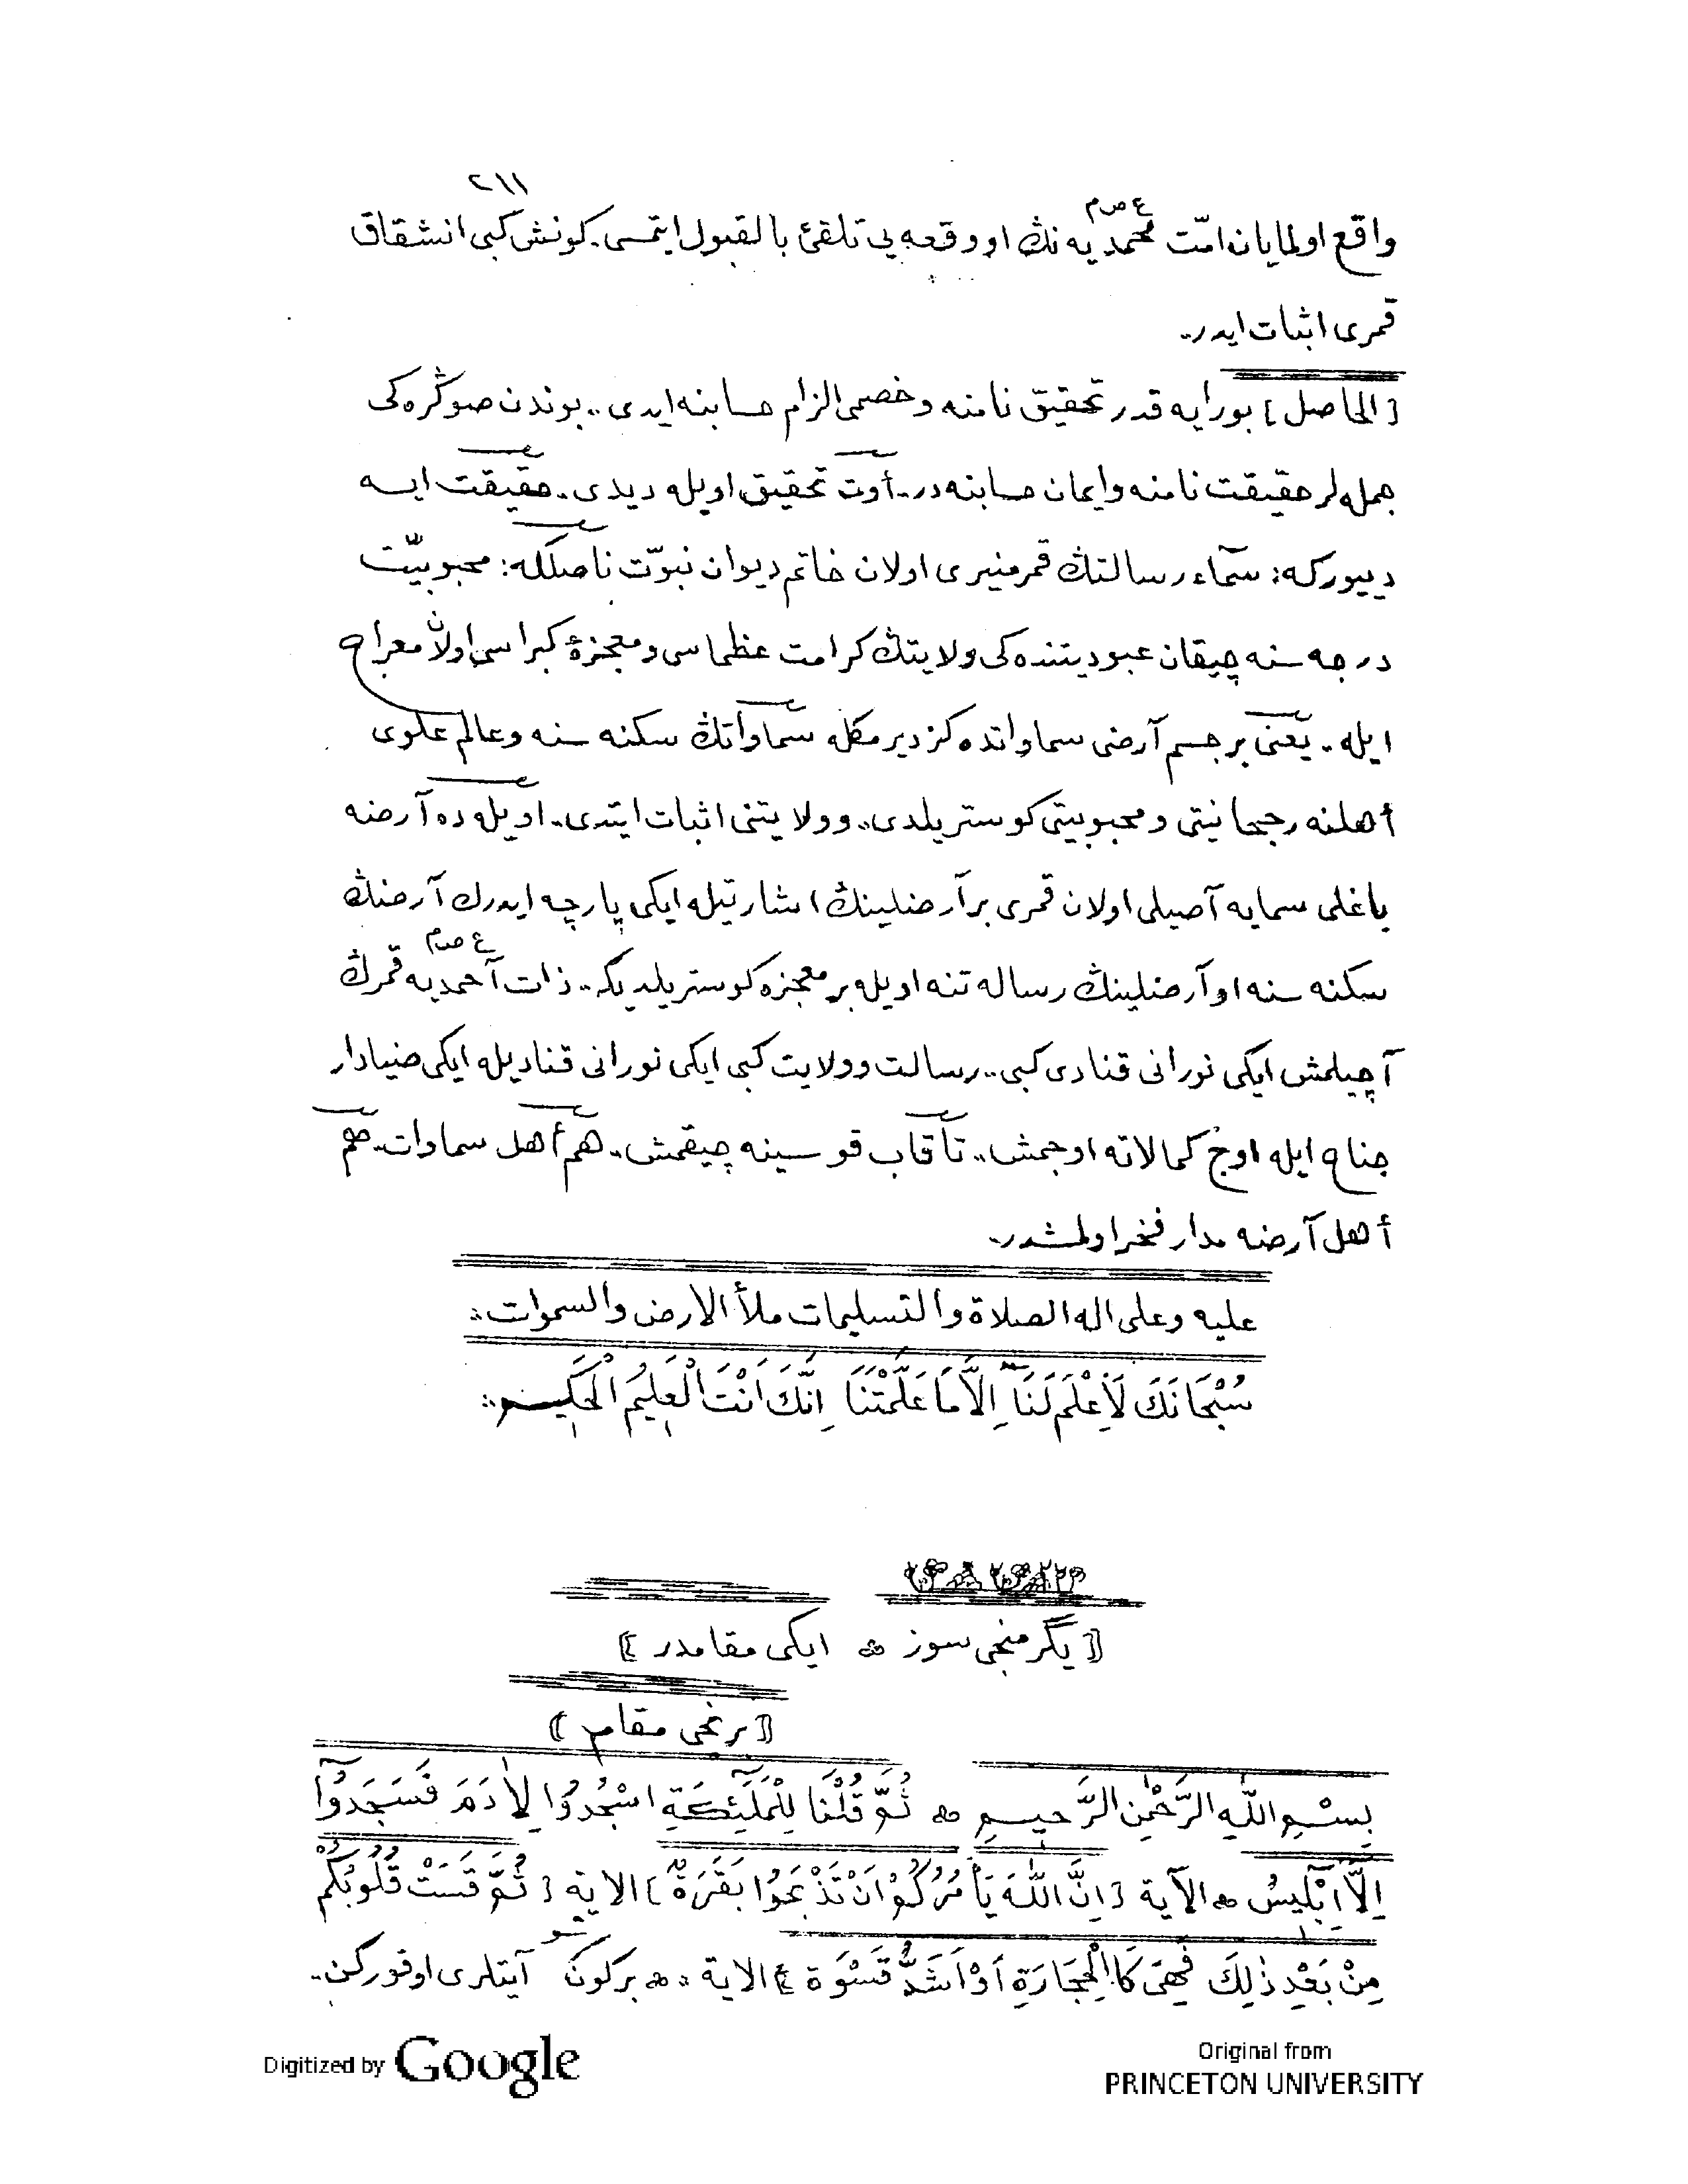 ٢١١
واقع اولمايان امّت محمديه‌نڭ ع ص م او وقعه‌يى تلقئ بالقبول ايتمسى. كونش كبى انشقاق
قمرى اثبات ايدر..
[الحاصل] بورايه قدر تحقيق نامنه و خصمى الزام حسابنه ايدى.. بوندن صوڭره‌كى
جمله‌لر حقيقت نامنه و ايمان حسابنه در.. أوت تحقيق اويله ديدى. حقيقت ايسه
دييوركه: سمآء رسالتڭ قمر منيرى اولان خاتم ديوان نبوّت ناصلكه: محبوبيّت
درجه سنه چيقان عبوديتنده‌كى ولايتڭ كرامت عظماسى و معجزۀ كبراسى اولان معراج
ايله.. يعنى بر جسم آرضى سماواتده كزديرمكله سماواتڭ سكنه سنه و عالم علوى
أهلنه رجحانيتى و محبوبيتى كوستريلدى.. و ولايتنى اثبات ايتدى.. اويله ده آرضه
باغلى سمايه آصيلى اولان قمرى بر آرضلينڭ اشارتيله ايكى پارچه ايدرك آرضڭ
سكنه سنه او آرضلينڭ رساله تنه اويله بر معجزه كوستريلديكه.. ذات آحمديه ع ص م قمرڭ
آچيلمش ايكى نورانى قنادى كبى.. رسالت و ولايت كبى ايكى نورانى قناديله ايكى ضيادار
جناح ايله اوج كمالاته اوجمش.. تا قاب قوسينه چيقمش.. هم أهل سماوات.. هم
أهل آرضه مدار فخر اولمشدر..
عليه وعلى اله الصلاة والتسليمات ملأ الارض والسموات
سُبْحَانَكَ لَا عِلْمَ لَنَا اِلَّا مَا عَلَّمْتَنَا اِنَّكَ اَنْتَ الْعَلِيمُ الْحَكِيم
[يگرمنجى سوز ايكى مقامدر]
[برنجى مقام]
بِسْمِ اللّٰهِ الرَّحْمٰنِ الرَّحِيمِ ثُمَّ قُلْنَا لِلْمَلٰٓئِكَةِ اسْجُدُوا لِاٰدَمَ فَسَجَدُوٓا
اِلَّآ اِبْلِيسُ الآية [اِنَّ اللّٰهَ يَاْمُرُكُمْ اَنْ تَذْبَحُوا بَقَرَةً] الاية [ثُمَّ قَسَتْ قُلُوبُكُمْ
مِنْ بَعْدِ ذٰلِكَ فَهِىَ كَالْحِجَارَةِ اَوْ اَشَدُّ قَسْوَة] الاية بركون شو آيتلرى اوقوركن..
Digitized by Google
Original from
PRINCETON UNIVERSITY